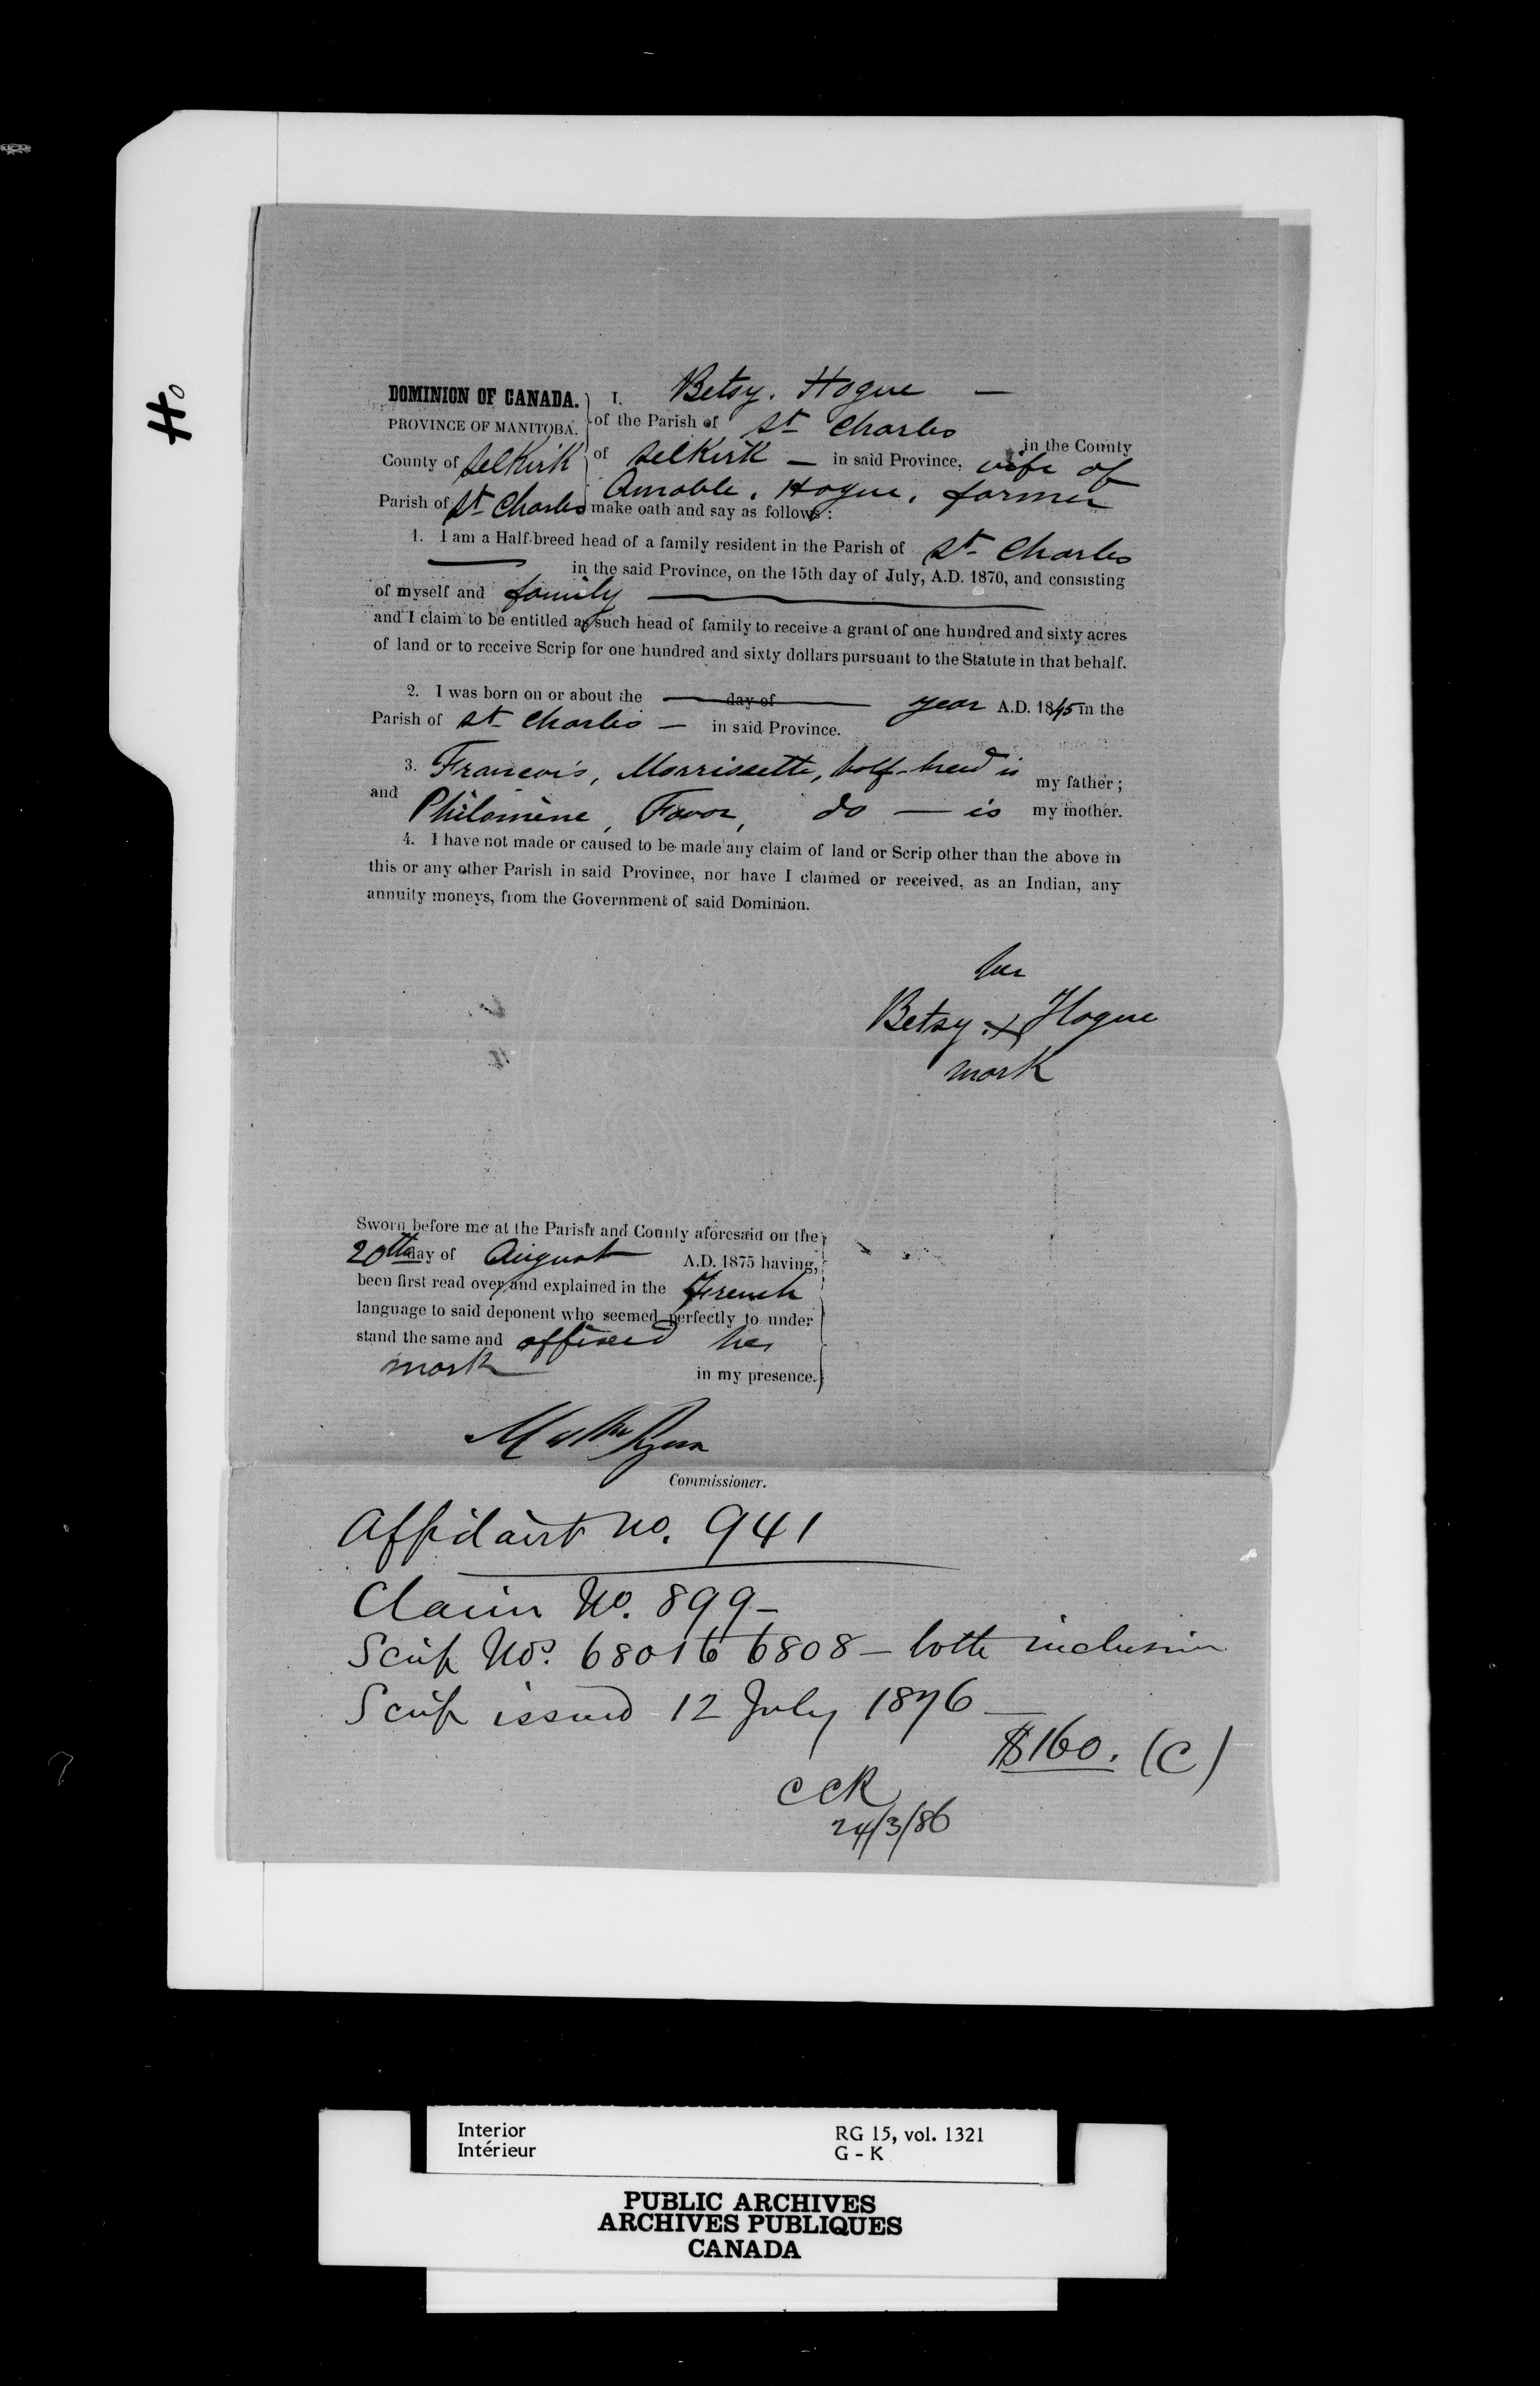 Ho
DOMINION OF CANADA. I. Betsy. Hogue —
PROVINCE OF MANITOBA. of the Parish of St Charles in the County
County of Selkirk of Selkirk — in said Province, wife of
Amable. Hogue. farmer
Parish of St Charles make oath and say as follows:
1. I am a Half-breed head of a family resident in the Parish of St. Charles
— in the said Province, on the 15th day of July, A.D. 1870, and consisting
of myself and family —
and I claim to be entitled as such head of family to receive a grant of one hundred and sixty acres
of land or to receive Scrip for one hundred and sixty dollars pursuant to the Statute in that behalf.
2. I was born on or about the day of year A.D. 1845 in the
Parish of St Charles — in said Province.
3. Francois, Morrissette, half-breed is my father;
and Philomène, Favor, do — is my mother.
4. I have not made or caused to be made any claim of land or Scrip other than the above in
this or any other Parish in said Province, nor have I claimed or received, as an Indian, any
annuity moneys, from the Government of said Dominion.
her
Betsy X Hogue
mark
Sworn before me at the Parish and County aforesaid on the
20th day of August A.D. 1875 having,
been first read over and explained in the French
language to said deponent who seemed perfectly to under
stand the same and affixed her
mark in my presence.
Commissioner.
Affidavit No. 941
Claim No. 899—
Scrip Nos. 6801 to 6808 — both inclusive
Scrip issued 12 July 1876 —
$160. (C)
CCR
24/3/86
Interior RG 15, vol. 1321
Intérieur G - K
PUBLIC ARCHIVES
ARCHIVES PUBLIQUES
CANADA